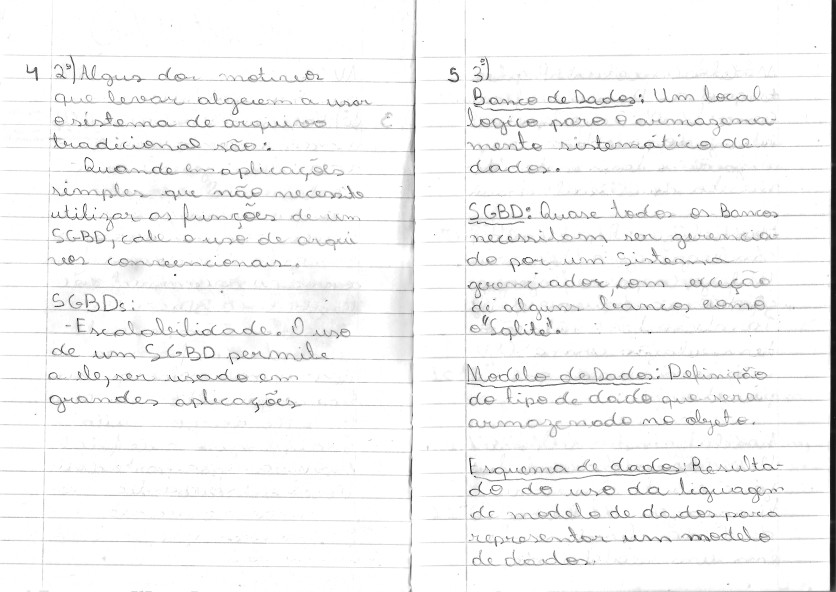 4 2º) Algus dos motivos
que levar alguem a usar
o sistema de arquivo
tradicional são:
- Quando em aplicações
simples que não necessita
utilizar as funções de um
SGBD, cabe o uso de arqui
vos convencionais.
SGBDs:
- Escalabilidade. O uso
de um SGBD permite
a ele, ser usado em
grandes aplicações
5 3º)
Banco de Dados: Um local
logico para o armazena-
mento sistemático de
dados.
SGBD: Quase todos os Bancos
necessitam ser gerencia-
do por um Sistema
gerenciador, com exceção
de alguns bancos como
o "Sqlite".
Modelo de Dados: Definição
do tipo de dado que sera
armazenado no objeto.
Esquema de dados: Resulta-
do do uso da liguagem
de modelo de dados para
representar um modelo
de dados.